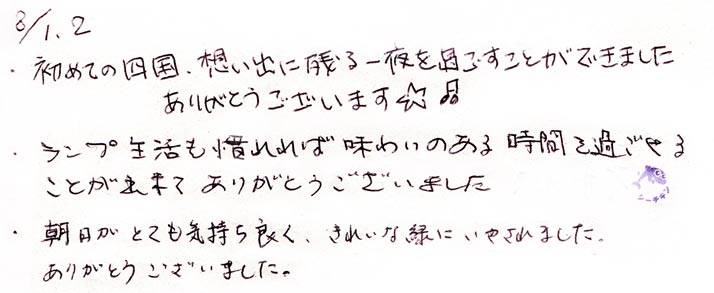 8/1.2
・初めての四国、想い出に残る一夜を過ごすことができました
ありがとうございます☆♫
・ランプ生活も慣れれば味わいのある時間を過ごせる
ことが出来て ありがとうございました
・朝日がとても気持ち良く、きれいな緑にいやされました。
ありがとうございました。